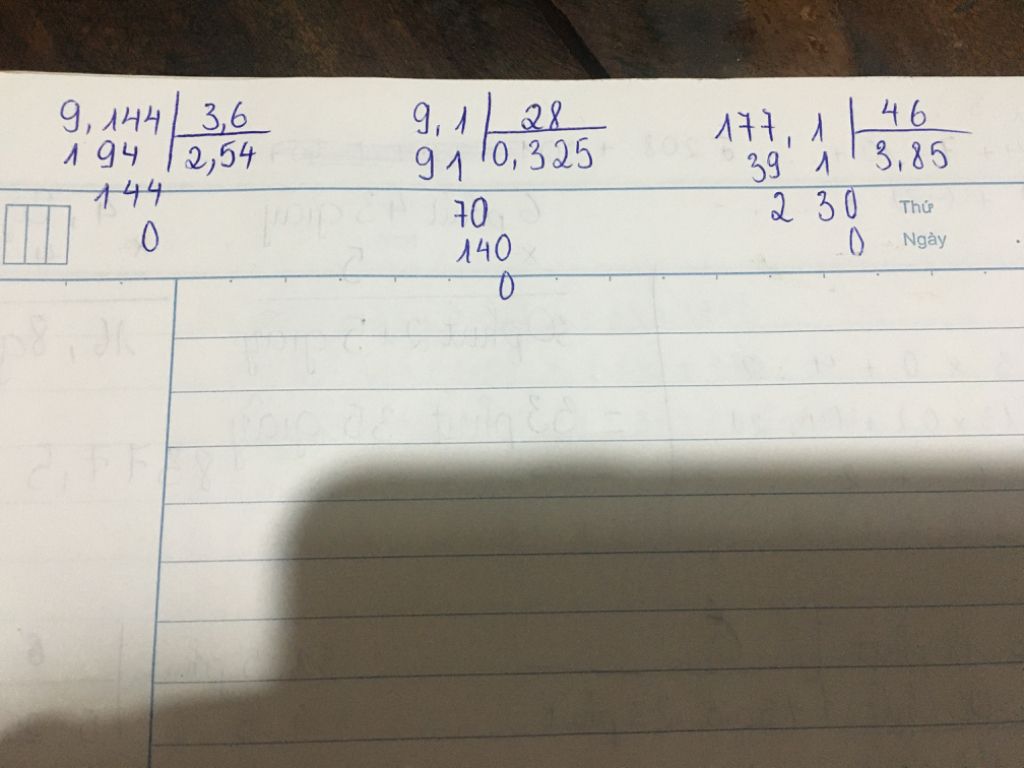 9,144 3,6
194 2,54
144
0
9,1 28
91 0,325
70
140
0
177,1 46
39 1 3,85
2 30
0
Thứ
Ngày